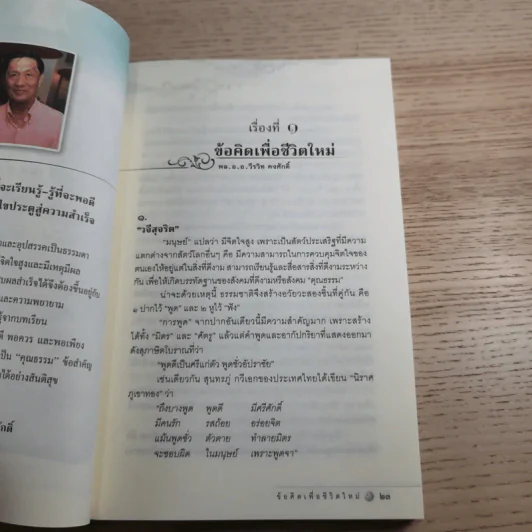 จะเรียนรู้-รู้ที่จะพอดี
ไขประตูสู่ความสำเร็จ
และอุปสรรคเป็นธรรมดา
จิตใจสูงและมีเหตุมีผล
ผลสำเร็จได้จึงต้องขึ้นอยู่กับ
และความพยายาม
รู้จากบทเรียน
ดี พอควร และพอเพียง
เป็น “คุณธรรม” ข้อสำคัญ
ได้อย่างสันติสุข
ศักดิ์
เรื่องที่ ๑
ข้อคิดเพื่อชีวิตใหม่
พล.อ.อ.วีรวิท คงศักดิ์
๑.
“วจีสุจริต”
“มนุษย์” แปลว่า มีจิตใจสูง เพราะเป็นสัตว์ประเสริฐที่มีความ
แตกต่างจากสัตว์โลกอื่นๆ คือ มีความสามารถในการควบคุมจิตใจของ
ตนเองให้อยู่แต่ในสิ่งที่ดีงาม สามารถเรียนรู้และสื่อสารสิ่งที่ดีงามระหว่าง
กัน เพื่อให้เกิดบรรทัดฐานของสังคมที่ดีงามหรือสังคม “คุณธรรม”
น่าจะด้วยเหตุนี้ ธรรมชาติจึงสร้างอวัยวะสองชิ้นที่คู่กัน คือ
๑ ปากไว้ “พูด” และ ๒ หูไว้ “ฟัง”
“การพูด” จากปากอันเดียวนี้มีความสำคัญมาก เพราะสร้าง
ได้ทั้ง “มิตร” และ “ศัตรู” แล้วแต่คำพูดและอากัปกริยาที่แสดงออกมา
ดังสุภาษิตโบราณที่ว่า
“พูดดีเป็นศรีแก่ตัว พูดชั่วอัปราชัย”
เช่นเดียวกับ สุนทรภู่ กวีเอกของประเทศไทยได้เขียน “นิราศ
ภูเขาทอง” ว่า
“ถึงบางพูด พูดดี มีศรีศักดิ์
มีคนรัก รสถ้อย อร่อยจิต
แม้นพูดชั่ว ตัวตาย ทำลายมิตร
จะชอบผิด ในมนุษย์ เพราะพูดจา”
ข้อคิดเพื่อชีวิตใหม่ ๒๓